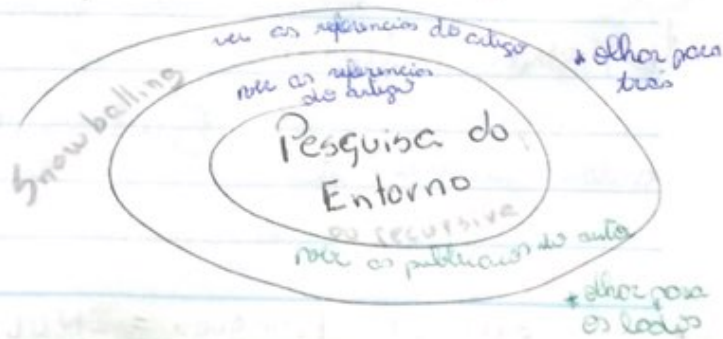 ver as referencias do artigo
* olhar para
trás
ver as referencias
do artigo
Snowballing
Pesquisa do
Entorno
ou recursiva
ver as publicacões do autor
* olhar para
os lados